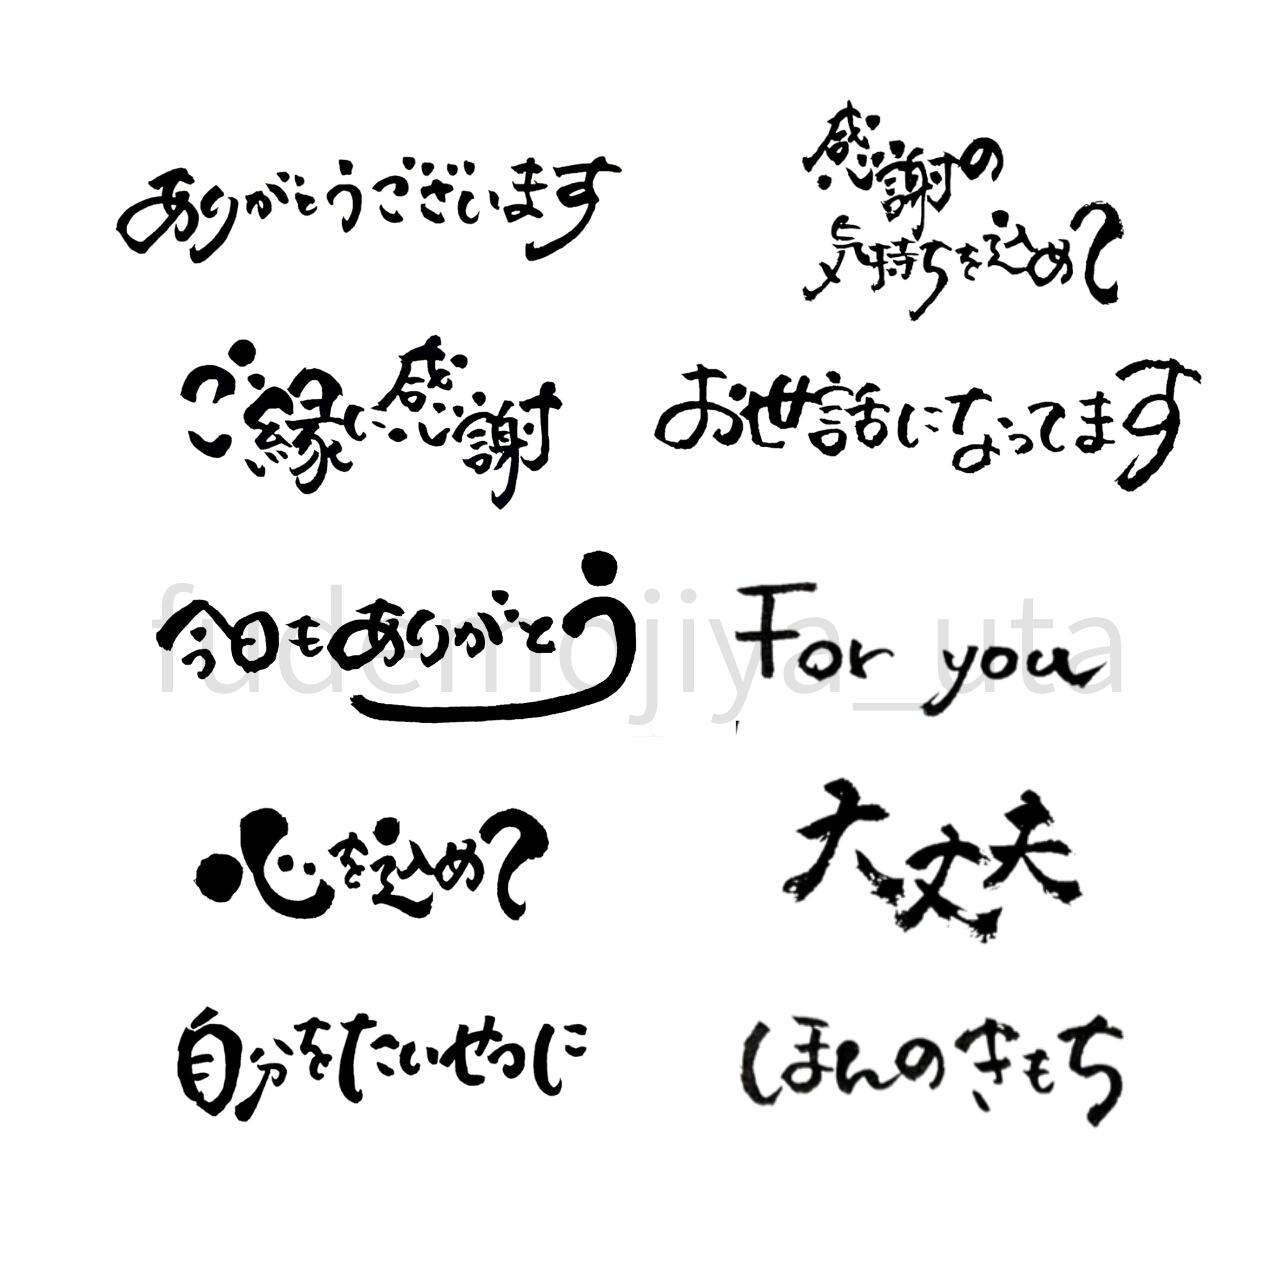 ありがとうございます
感謝の
気持ちを込めて
ご縁に感謝
お世話になってます
今日もありがとう
For you
fudemojiya_uta
心を込めて
大丈夫
自分をたいせつに
ほんのきもち